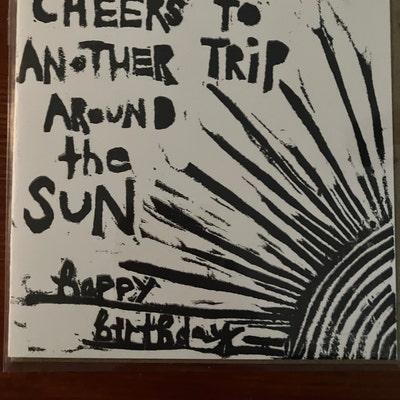 CHEERS TO
ANOTHER TRIP
AROUND
the
SUN
happy
birthday